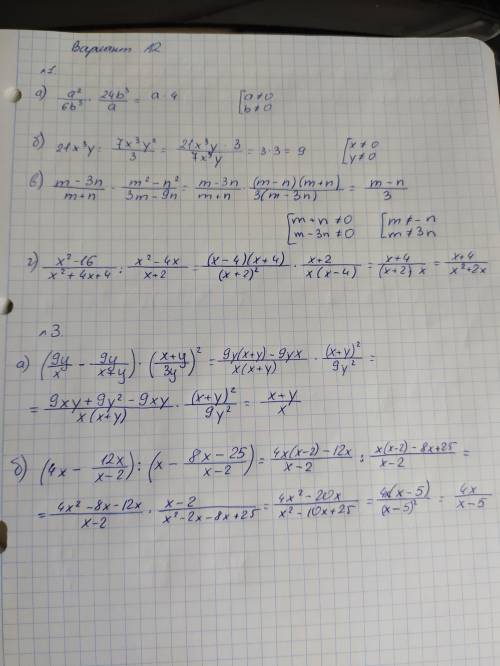 Вариант 12
№1
а) a²/6b³ · 24b³/a = a · 4 [a≠0 b≠0
б) 21x³y : 7x³y²/3 = 21x³y · 3/7x³y = 3·3 = 9 [x≠0 y≠0
в) m-3n/m+n · m²-n²/3m-9n = m-3n/m+n · (m-n)(m+n)/3(m-3n) = m-n/3
[m+n≠0 m-3n≠0 [m≠-n m≠3n
г) x²-16/x²+4x+4 : x²-4x/x+2 = (x-4)(x+4)/(x+2)² · x+2/x(x-4) = x+4/(x+2)x = x+4/x²+2x
№3.
а) (9y/x - 9y/x+y) · (x+y/3y)² = 9y(x+y)-9yx/x(x+y) · (x+y)²/9y² =
= 9xy+9y²-9xy/x(x+y) · (x+y)²/9y² = x+y/x
б) (4x - 12x/x-2) : (x - 8x-25/x-2) = 4x(x-2)-12x/x-2 : x(x-2)-8x+25/x-2 =
= 4x²-8x-12x/x-2 · x-2/x²-2x-8x+25 = 4x²-20x/x²-10x+25 = 4x(x-5)/(x-5)² = 4x/x-5